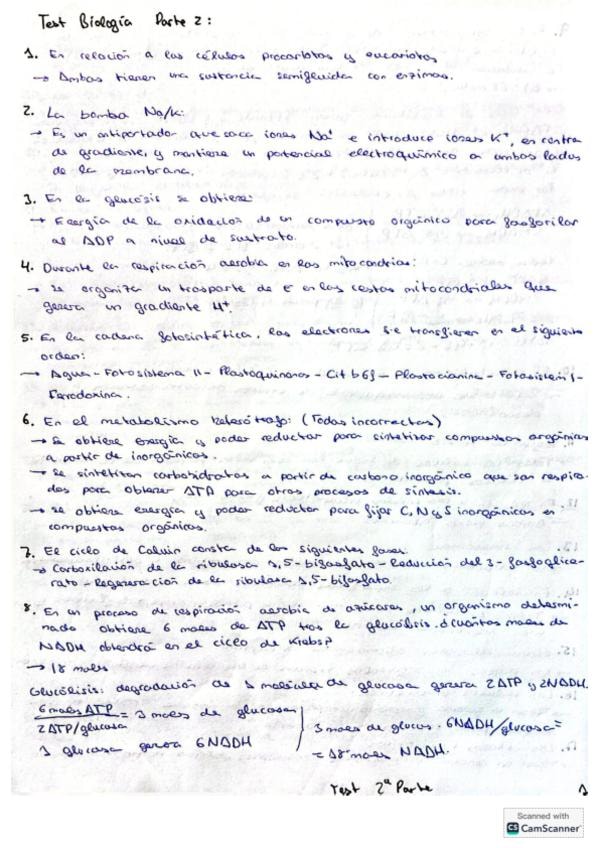 Test Biología Parte 2:
1. En relación a las células procariotas y eucariotas
→ Ambas tienen una sustancia semifluida con enzimas.
2. La bomba Na/K:
→ Es un antiportador que saca iones Na⁺ e introduce iones K⁺, en contra
de gradiente, y mantiene un potencial electroquímico a ambos lados
de la membrana.
3. En la glucósis se obtiene:
→ Energía de la oxidación de un compuesto orgánico para fosforilar
al ADP a nivel de sustrato.
4. Durante la respiración aerobia en las mitocondrias:
→ Se organiza un trasporte de e⁻ en las crestas mitocondriales que
genera un gradiente H⁺.
5. En la cadena fotosintética, los electrones se transfieren en el siguiente
orden:
→ Agua - Fotosistema II - Plastoquinonas - Cit b6f - Plastocianina - Fotosistem I -
Ferrodoxina.
6. En el metabolismo heterótrofo: (Todas incorrectas)
→ Se obtiene energía y poder reductor para sintetizar compuestos orgánicos
a partir de inorgánicos.
→ Se sintetizan carbohidratos a partir de carbono inorgánico que son respira-
dos para obtener ATP para otros procesos de síntesis.
→ Se obtiene energía y poder reductor para fijar C, N y S inorgánicos en
compuestos orgánicos.
7. El ciclo de Calvin consta de las siguientes fases:
→ Carboxilación de la ribulosa 1,5-bifosfato - Reducción del 3-fosfoglice-
rato - regeneración de la ribulosa 1,5-bifosfato.
8. En un proceso de respiración aerobia de azúcares, un organismo determi-
nado obtiene 6 moles de ATP tras la glucólisis. ¿cuántos moles de
NADH obtendrá en el ciclo de Krebs?
→ 18 moles
Glucólisis: degradación de 1 molécula de glucosa genera 2ATP y 2NADH.
6 moles ATP / 2ATP/glucosa = 3 moles de glucosa
3 moles de glucos. 6NADH/glucosa=
1 glucosa genera 6NADH
= 18 moles NADH.
Test 2ª Parte
1
Scanned with
CS CamScanner